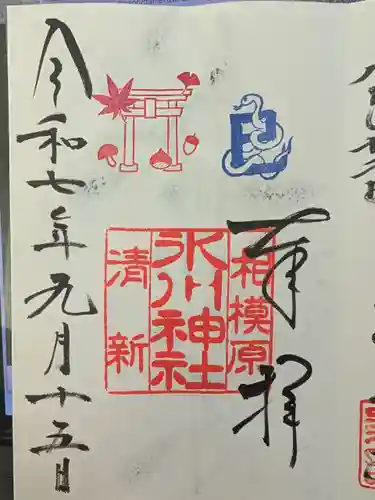 奉拝
相模原
氷川神社
清新
令和七年元月十五日